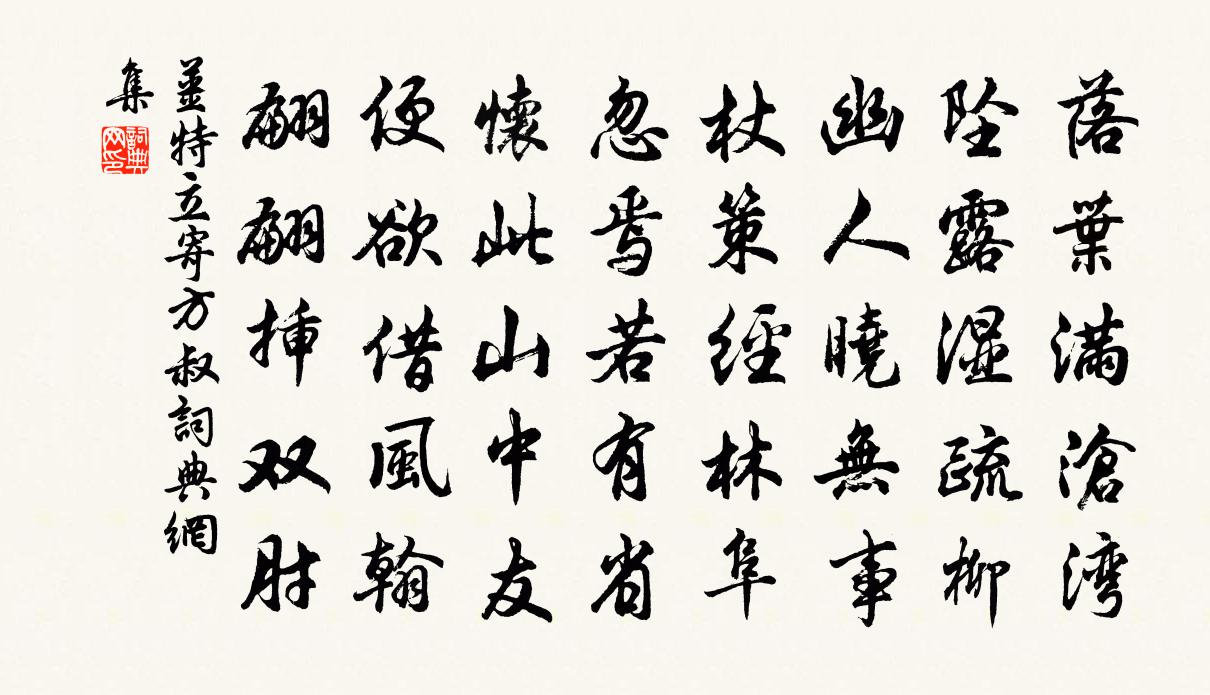 落葉满滄湾
坠露湿疏柳
幽人曉無事
杖策經林阜
忽焉若有省
懷此山中友
便欲借風翰
翩翩挿双肘
薑特立寄方叔詞典網
集
詞典
网印